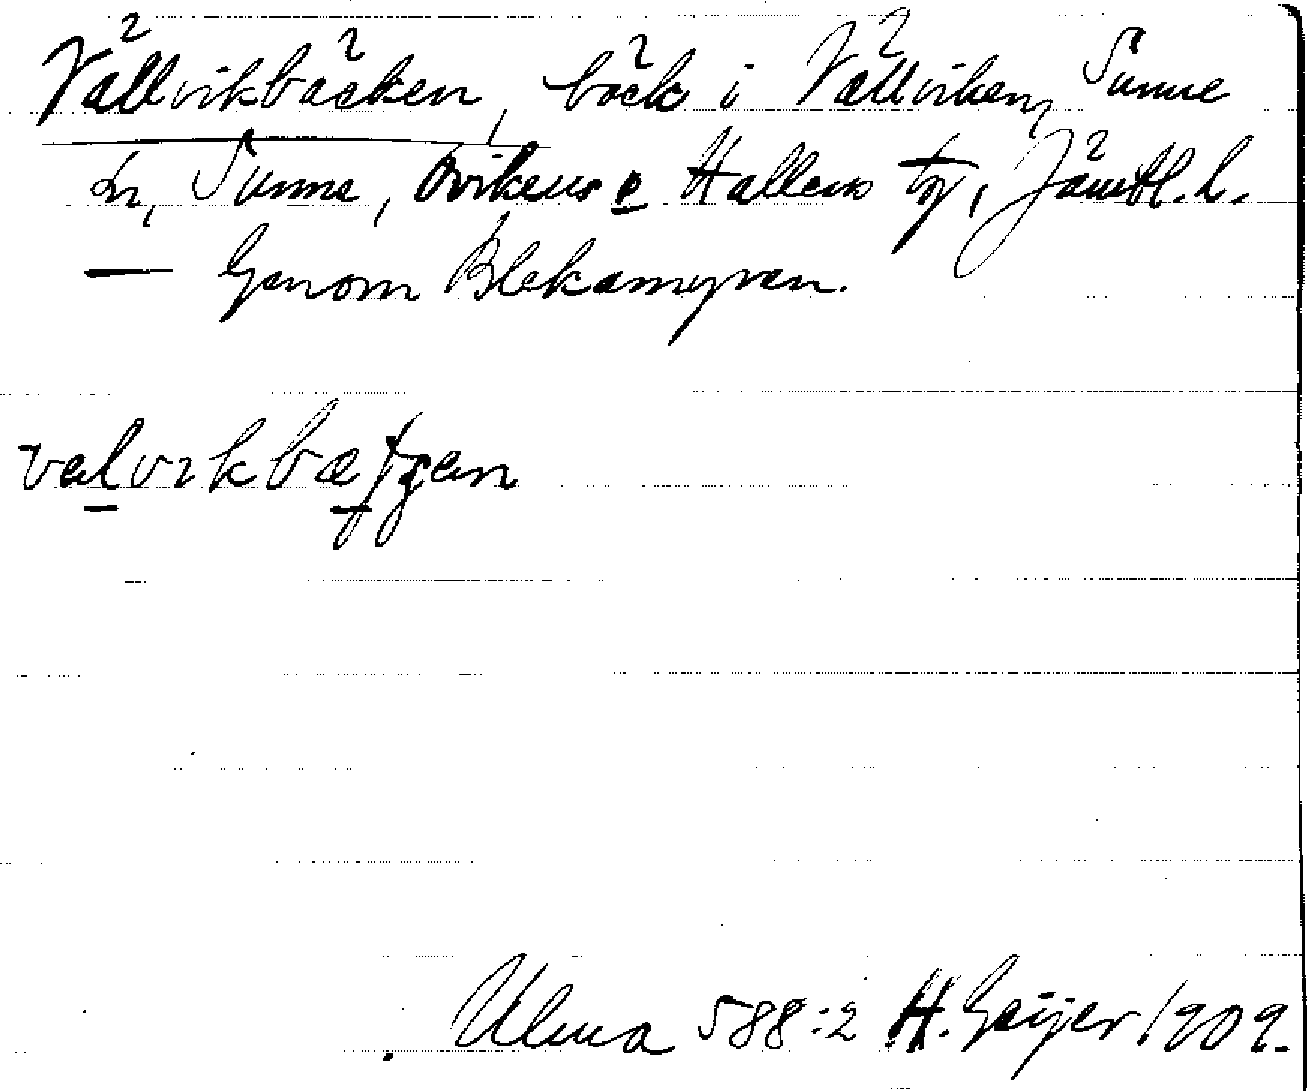 Vällvikbäcken, bäck i Vällviken, Sunne
sn, Sunne, Ovikens o Hallens tg, Jämtl. l.
— Genom Blekamyran.
Ulma 588:2 H. Geijer 1909.